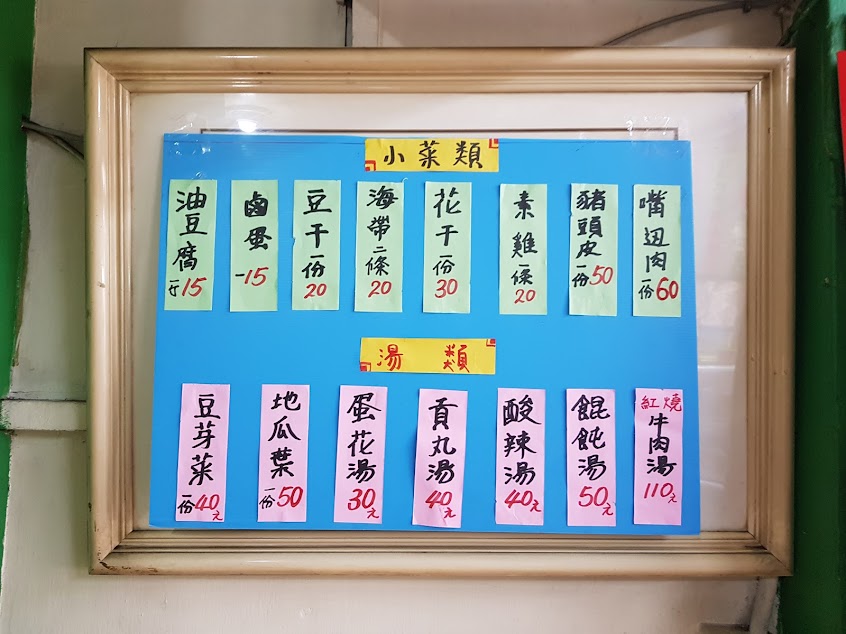 小菜類
嘴边肉一份60
豬頭皮一份50
素雞一條20
花干一份30
海帶二條20
豆干一份20
鹵蛋一15
油豆腐一15
湯類
紅燒牛肉湯110元
餛飩湯50元
酸辣湯40元
貢丸湯40元
蛋花湯30元
地瓜葉一份50
豆芽菜一份40元